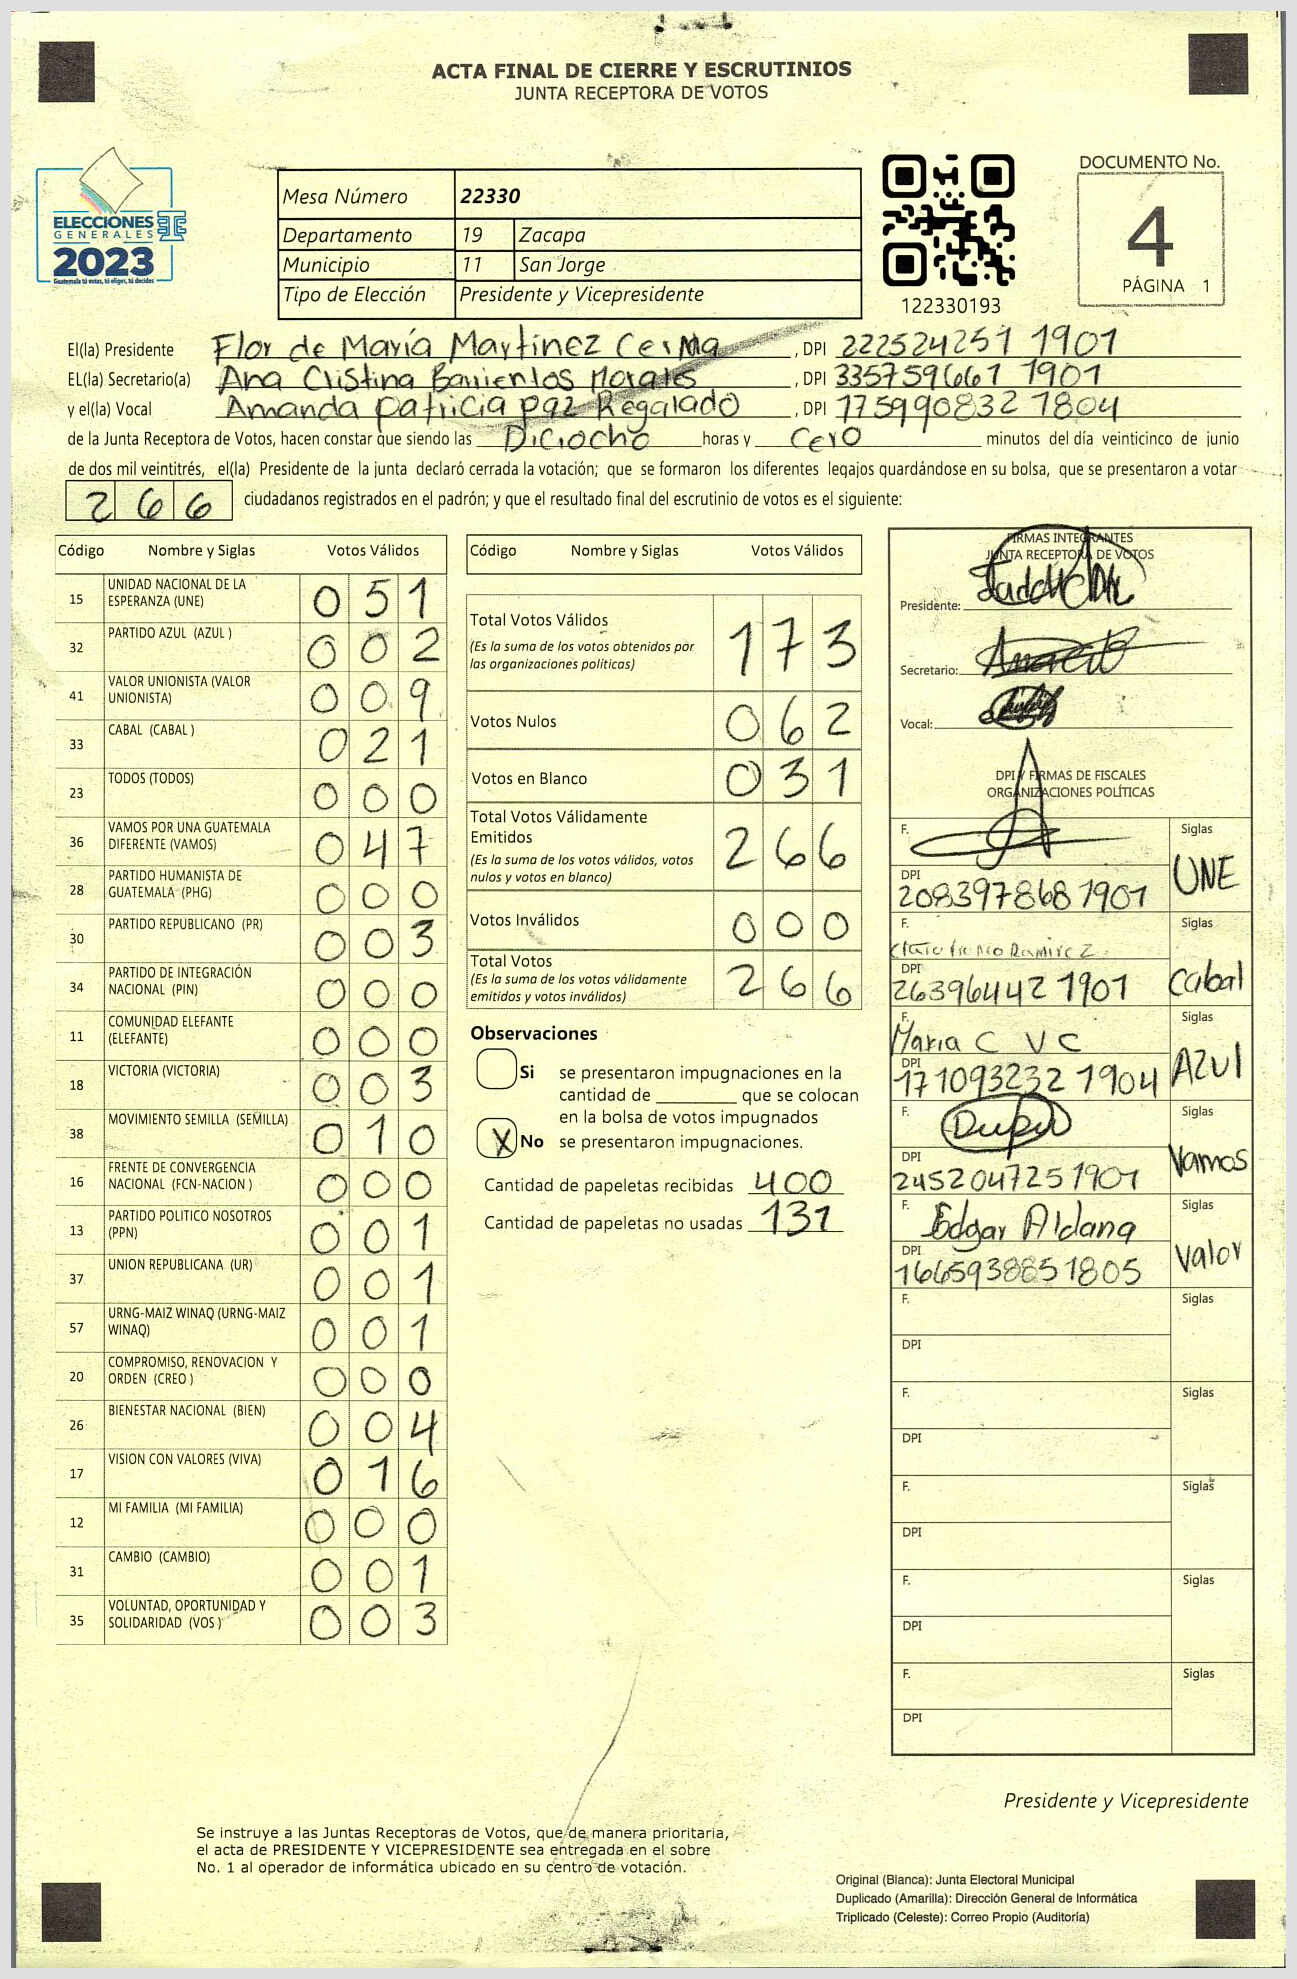 ACTA FINAL DE CIERRE Y ESCRUTINIOS
JUNTA RECEPTORA DE VOTOS
ELECCIONES
GENERALES
2023
Guatemala tú votas, tú eliges, tú decides
Mesa Número 22330
Departamento 19 Zacapa
Municipio 11 San Jorge
Tipo de Elección Presidente y Vicepresidente
122330193
DOCUMENTO No.
4
PÁGINA 1
El(la) Presidente Flor de María Martínez Cerna, DPI 222524251 1901
EL(la) Secretario(a) Ana Cristina Barrientos Morales, DPI 335759661 1901
y el(la) Vocal Amanda Patricia Paz Regalado, DPI 175990832 1804
de la Junta Receptora de Votos, hacen constar que siendo las Diciocho horas y Cero minutos del día veinticinco de junio
de dos mil veintitrés, el(la) Presidente de la junta declaró cerrada la votación; que se formaron los diferentes legajos guardándose en su bolsa, que se presentaron a votar
266 ciudadanos registrados en el padrón; y que el resultado final del escrutinio de votos es el siguiente:
Código Nombre y Siglas Votos Válidos
15 UNIDAD NACIONAL DE LA ESPERANZA (UNE) 051
32 PARTIDO AZUL (AZUL ) 002
41 VALOR UNIONISTA (VALOR UNIONISTA) 009
33 CABAL (CABAL ) 021
23 TODOS (TODOS) 000
36 VAMOS POR UNA GUATEMALA DIFERENTE (VAMOS) 047
28 PARTIDO HUMANISTA DE GUATEMALA (PHG) 000
30 PARTIDO REPUBLICANO (PR) 003
34 PARTIDO DE INTEGRACIÓN NACIONAL (PIN) 000
11 COMUNIDAD ELEFANTE (ELEFANTE) 000
18 VICTORIA (VICTORIA) 003
38 MOVIMIENTO SEMILLA (SEMILLA) 010
16 FRENTE DE CONVERGENCIA NACIONAL (FCN-NACION ) 000
13 PARTIDO POLITICO NOSOTROS (PPN) 001
37 UNION REPUBLICANA (UR) 001
57 URNG-MAIZ WINAQ (URNG-MAIZ WINAQ) 001
20 COMPROMISO, RENOVACION Y ORDEN (CREO ) 000
26 BIENESTAR NACIONAL (BIEN) 004
17 VISION CON VALORES (VIVA) 016
12 MI FAMILIA (MI FAMILIA) 000
31 CAMBIO (CAMBIO) 001
35 VOLUNTAD, OPORTUNIDAD Y SOLIDARIDAD (VOS ) 003
Código Nombre y Siglas Votos Válidos
Total Votos Válidos 173
(Es la suma de los votos obtenidos por
las organizaciones políticas)
Votos Nulos 062
Votos en Blanco 031
Total Votos Válidamente
Emitidos 266
(Es la suma de los votos válidos, votos
nulos y votos en blanco)
Votos Inválidos 000
Total Votos 266
(Es la suma de los votos válidamente
emitidos y votos inválidos)
Observaciones
Si se presentaron impugnaciones en la
cantidad de ________ que se colocan
en la bolsa de votos impugnados
X No se presentaron impugnaciones.
Cantidad de papeletas recibidas 400
Cantidad de papeletas no usadas 131
FIRMAS INTEGRANTES
JUNTA RECEPTORA DE VOTOS
Presidente:
Secretario:
Vocal:
DPI Y FIRMAS DE FISCALES
ORGANIZACIONES POLÍTICAS
F. Siglas
DPI UNE
208397868 1901
F. Siglas
Ramirez
DPI Cabal
263964427 1901
F. Siglas
Maria C V C
DPI AZUl
171093232 1904
F. Siglas
DPI Vamos
245204725 1901
F. Siglas
Edgar Aldana
DPI Valor
166593885 1805
F. Siglas
DPI
F. Siglas
DPI
F. Siglas
DPI
F. Siglas
DPI
F. Siglas
DPI
Presidente y Vicepresidente
Se instruye a las Juntas Receptoras de Votos, que de manera prioritaria,
el acta de PRESIDENTE Y VICEPRESIDENTE sea entregada en el sobre
No. 1 al operador de informática ubicado en su centro de votación.
Original (Blanca): Junta Electoral Municipal
Duplicado (Amarilla): Dirección General de Informática
Triplicado (Celeste): Correo Propio (Auditoría)